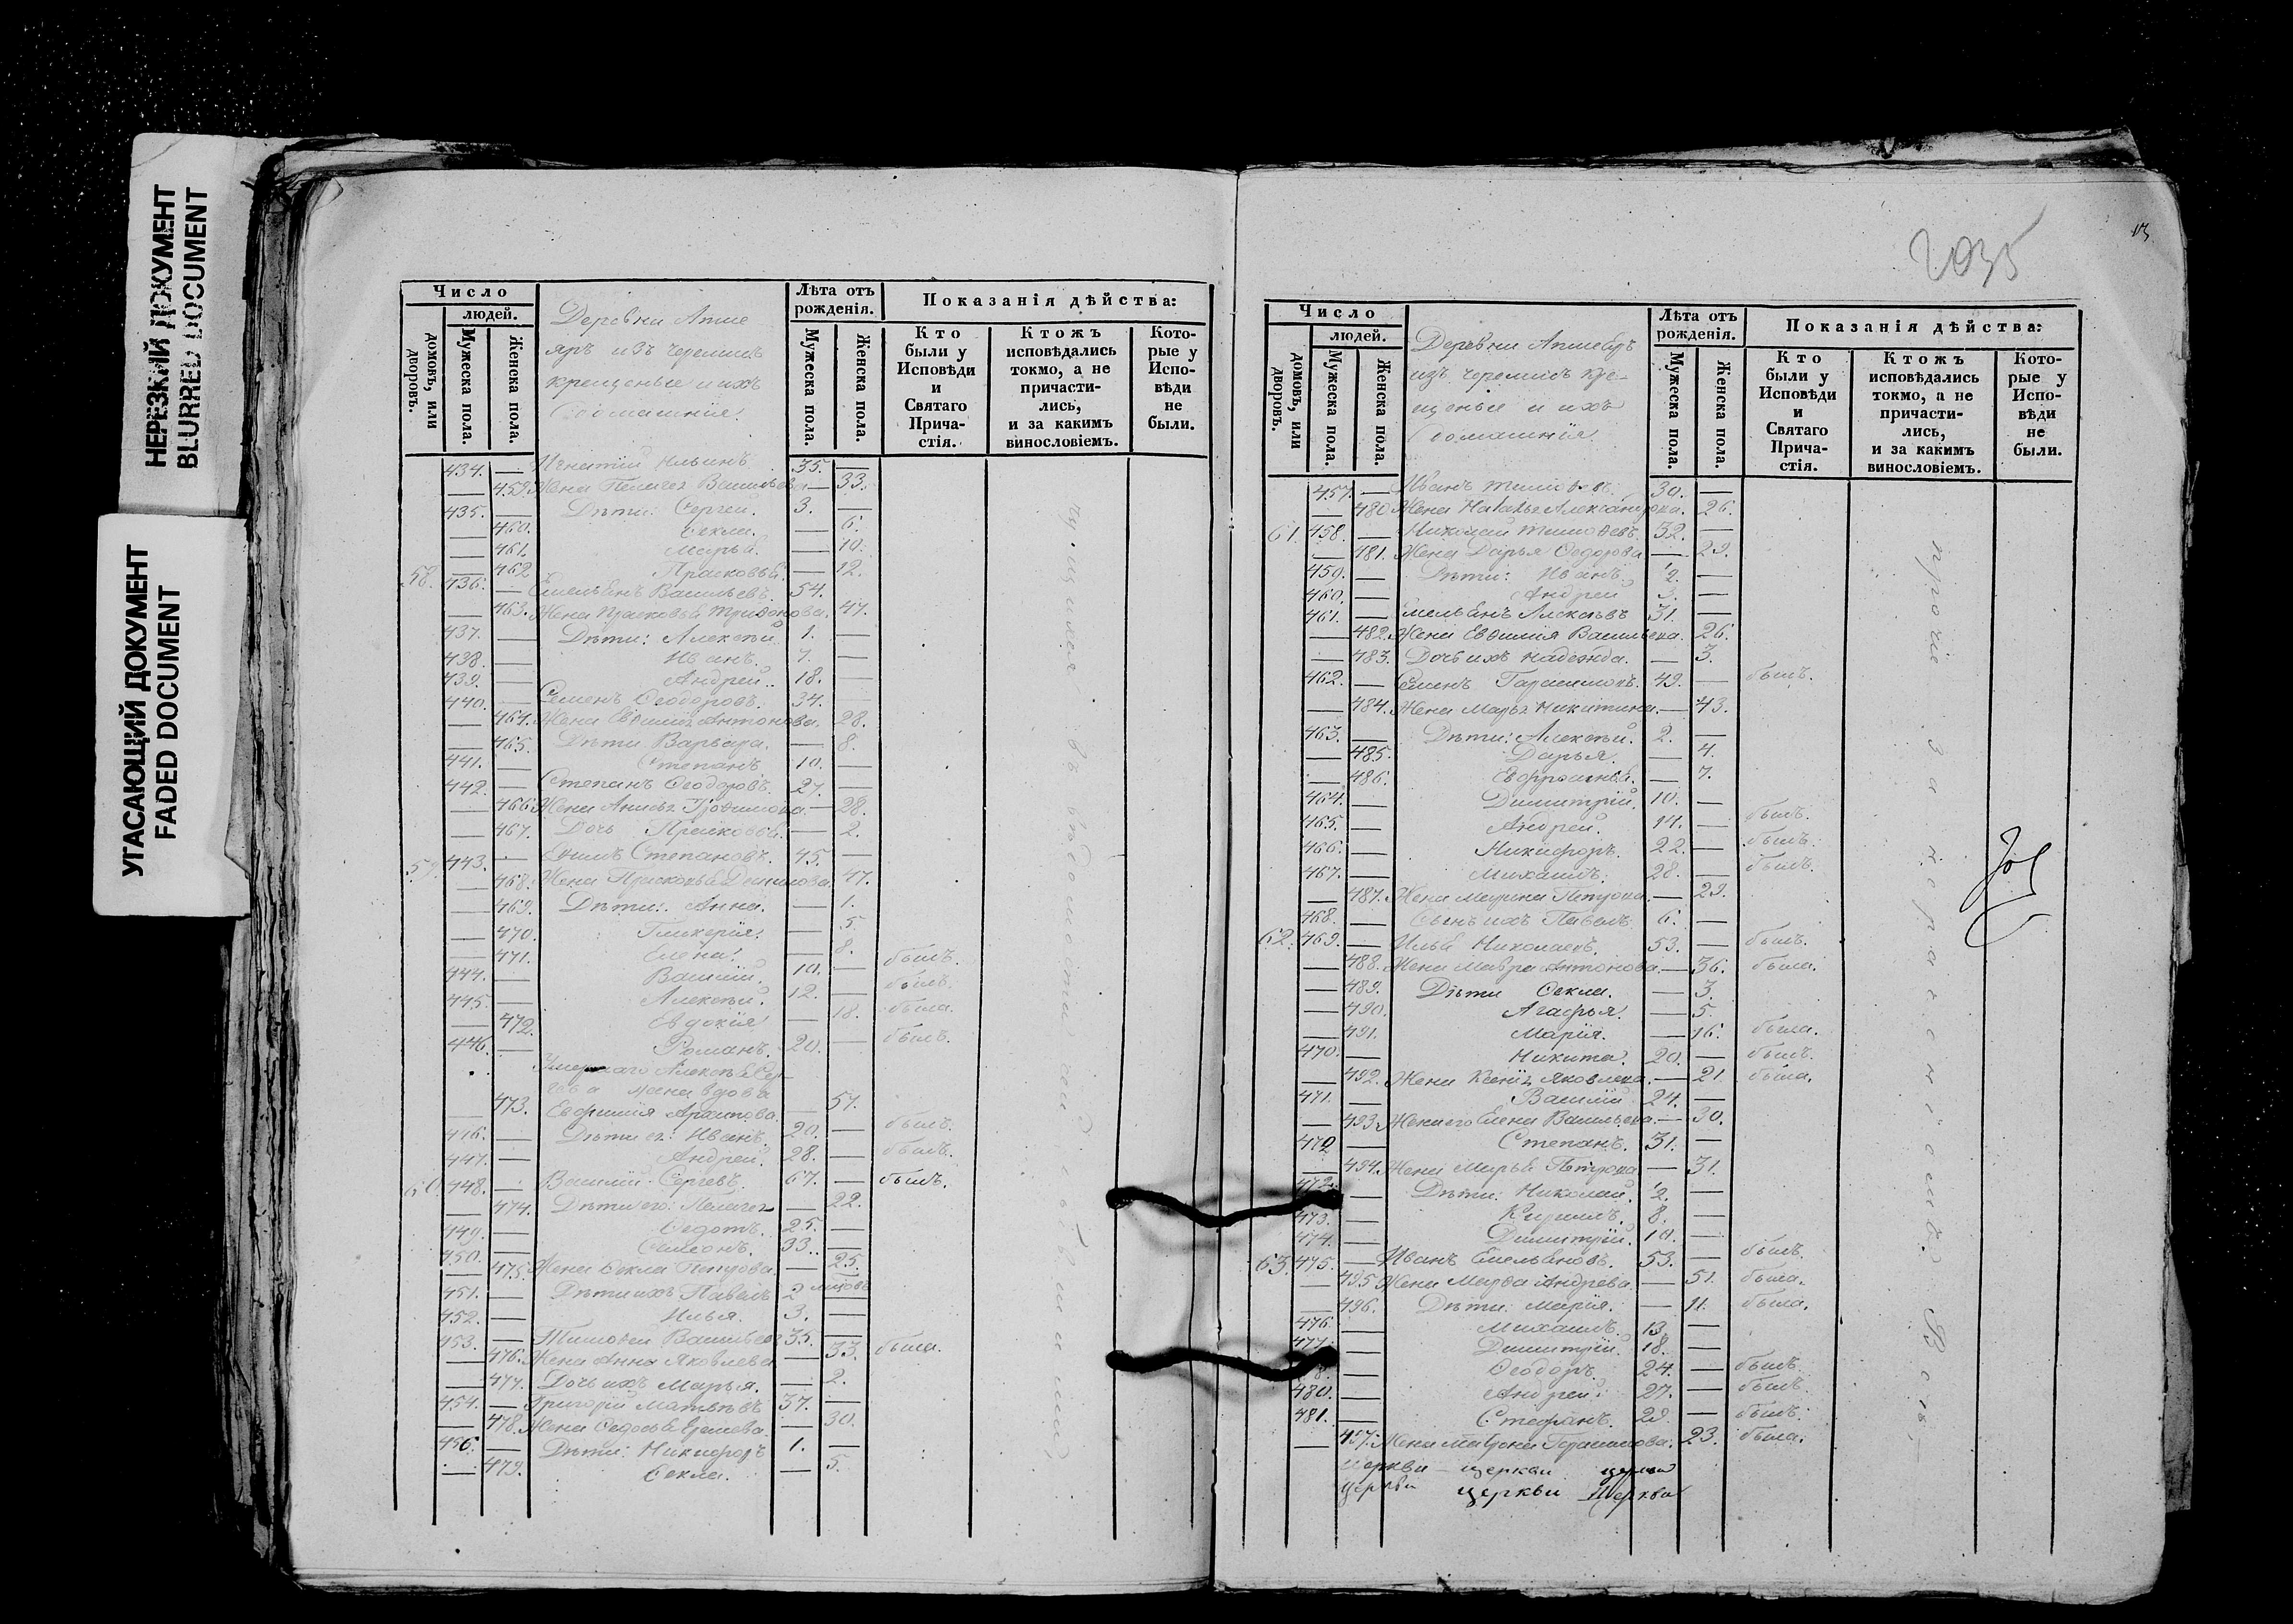 НЕРЕЗКИЙ ДОКУМЕНТ
BLURRED DOCUMENT
УГАСАЮЩИЙ ДОКУМЕНТ
FADED DOCUMENT
Число
людей.
домовъ, или дворовъ.
Мужеска пола.
Женска пола.
Деревни
яръ изъ черемисъ
крещеные и ихъ
домашнія.
Лѣта отъ рожденія.
Мужеска пола.
Женска пола.
Показанія дѣйства:
Кто были у Исповѣди и Святаго Прича-стія.
Ктожъ исповѣдались токмо, а не причасти-лись, и за какимъ винословіемъ.
Кото-рые у Испо-вѣди не были.
434. — Игнатій Ильинъ 35. —
— 459. Жена Пелагея Васильева — 33.
435. — Дѣти: Сергей. 3. —
— 460. Ѳекла. — 6.
— 461. Марья. — 10.
— 462 Прасковья. — 12.
58. 436. — Емельянъ Васильевъ. 54.
— 463. Жена Прасковья Трифонова. 47.
437. — Дѣти: Алексѣй 1. —
438. — Иванъ. 7. —
439. — Андрей. 18. —
440. — Семенъ Ѳеодоровъ. 34. —
— 464. Жена Евфимія Антонова. 28.
— 465. Дѣти Варвара. — 8.
441. — Степанъ 10. —
442. — Степанъ Ѳеодоровъ. 27. —
— 466. Жена Анисья — 28.
— 467. Дочь Прасковья. — 2.
59. 443. — Степановъ. 45. —
— 468. Жена Прасковья Данилова. 47.
— 469. Дѣти: Анна. — 1.
— 470. Гликерія. — 5.
— 471. Елена. — 8.
444. — Василій. 10. — былъ.
445. — Алексѣй. 12. — былъ.
— 472. Евдокія — 18. была.
446. — Романъ. 20. — былъ.
Умершаго Алексѣя
жена вдова
— 473. Евфимія — 57.
446. — Дѣти ея: Иванъ. 20. — былъ.
447. — Андрей. 28. — былъ.
60. 448. — Василій Сергѣевъ. 67. — былъ.
— 474. Дѣти его: Пелагея — 22.
449. — Ѳедотъ. 25. —
450. — Симеонъ. 33. —
— 475. Жена Ѳекла Петрова. — 25.
451. — Дѣти ихъ Павелъ 2
452. — Илья. 3. —
453. — Тимофей Васильевъ 35. —
— 476. Жена Анна Яковлева — 33. была.
— 477. Дочь ихъ Марья. — 2.
454. — Григорій Матвѣевъ 37. —
— 478. Жена Ѳедосья — 30.
456. — Дѣти: Никифоръ 1. —
— 479. Ѳекла. — 5.
2035
13
Число
людей.
домовъ, или дворовъ.
Мужеска пола.
Женска пола.
Деревни
изъ черемисъ кре-
щеные и ихъ
домашнія.
Лѣта отъ рожденія.
Мужеска пола.
Женска пола.
Показанія дѣйства:
Кто были у Исповѣди и Святаго Прича-стія.
Ктожъ исповѣдались токмо, а не причасти-лись, и за какимъ винословіемъ.
Кото-рые у Испо-вѣди не были.
457. — Иванъ 30. —
— 480 Жена Наталья Александрова. 26.
61. 458. — Николай 32. —
— 481. Жена Дарья Ѳедорова — 29.
459. — Дѣти: Иванъ. 2. —
460. — Андрей 3. —
461. — Емельянъ 31. —
— 482. Жена Евфимія Васильева. 26.
— 483. Дочь ихъ Надежда. — 3.
462. — Семенъ Герасимовъ. 49. — былъ.
— 484. Жена Марья Никитина. — 43.
463. — Дѣти: Алексѣй. 2. —
— 485. Дарья. — 4.
— 486. Евфросинья. — 7.
464. — Димитрій. 10. —
465. — Андрей. 14. — былъ.
466. — Никифоръ. 22. — былъ.
467. — Михаилъ. 28. — былъ.
— 487. Жена Марина Петрова. — 29.
468. — Сынъ ихъ Павелъ 6. —
62. 469. — Илья Николаевъ. 53. — былъ.
— 488. Жена Мавра Антонова — 36. была.
— 489. Дѣти Ѳекла. — 3.
— 490. Агафья. — 5.
— 491. Марія. — 16. была.
470. — Никита. 20. — былъ.
— 492. Жена Ксенія Яковлева. — 21. была.
471. — Василій 24. —
— 493. Жена его Елена Васильева — 30.
472 — Степанъ. 31. —
— 494. Жена Марья Петрова — 31.
472. — Дѣти: Николай. 2. —
473. — Кирилъ. 8. —
474. — Димитрій. 10. —
63. 475. — Иванъ Емельяновъ. 53. — былъ.
— 495 Жена Марфа Андреева. — 51. была.
— 496. Дѣти: Марія. — 11. была.
476. — Михаилъ. 13. —
477. — Димитрій. 18. —
— Ѳеодоръ. 24. — былъ.
480. — Андрей. 27. — былъ.
481. — Стефанъ. 29. — былъ.
— 497. Жена Матрона Герасимова. 23. была.
церкви церкви церкви
церкви церкви церкви